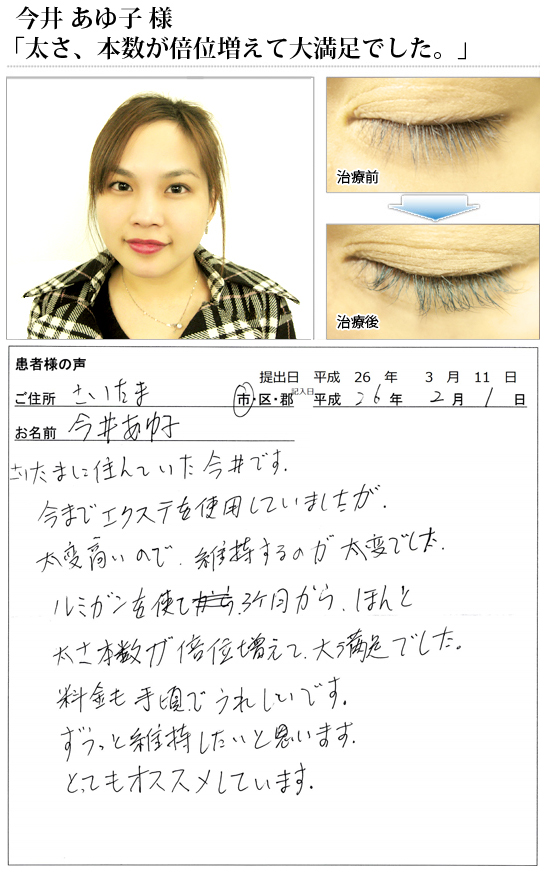 今井 あゆ子 様
「太さ、本数が倍位増えて大満足でした。」
治療前
治療後
患者様の声
提出日 平成 26 年 3 月 11 日
ご住所 さいたま 市・区・郡 記入日 平成 26 年 2 月 1 日
お名前 今井あゆ子
さいたまに住んでいた今井です.
今までエクステを使用していましたが.
大変高いので、維持するのが大変でした.
ルミガンを使て 3ケ月から、ほんと
太さ本数が倍位増えて、大満足でした。
料金も手頃でうれしいです.
ずうっと維持したいと思います.
とってもオススメしています.